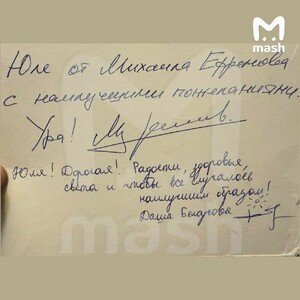 mash
Юле от Михаила Ефремова
с наилучшими пожеланиями.
Ура!
Юля! Дорогая! Радости, здоровья,
света и чтобы все случалось
наилучшим образом!
Даша
mash